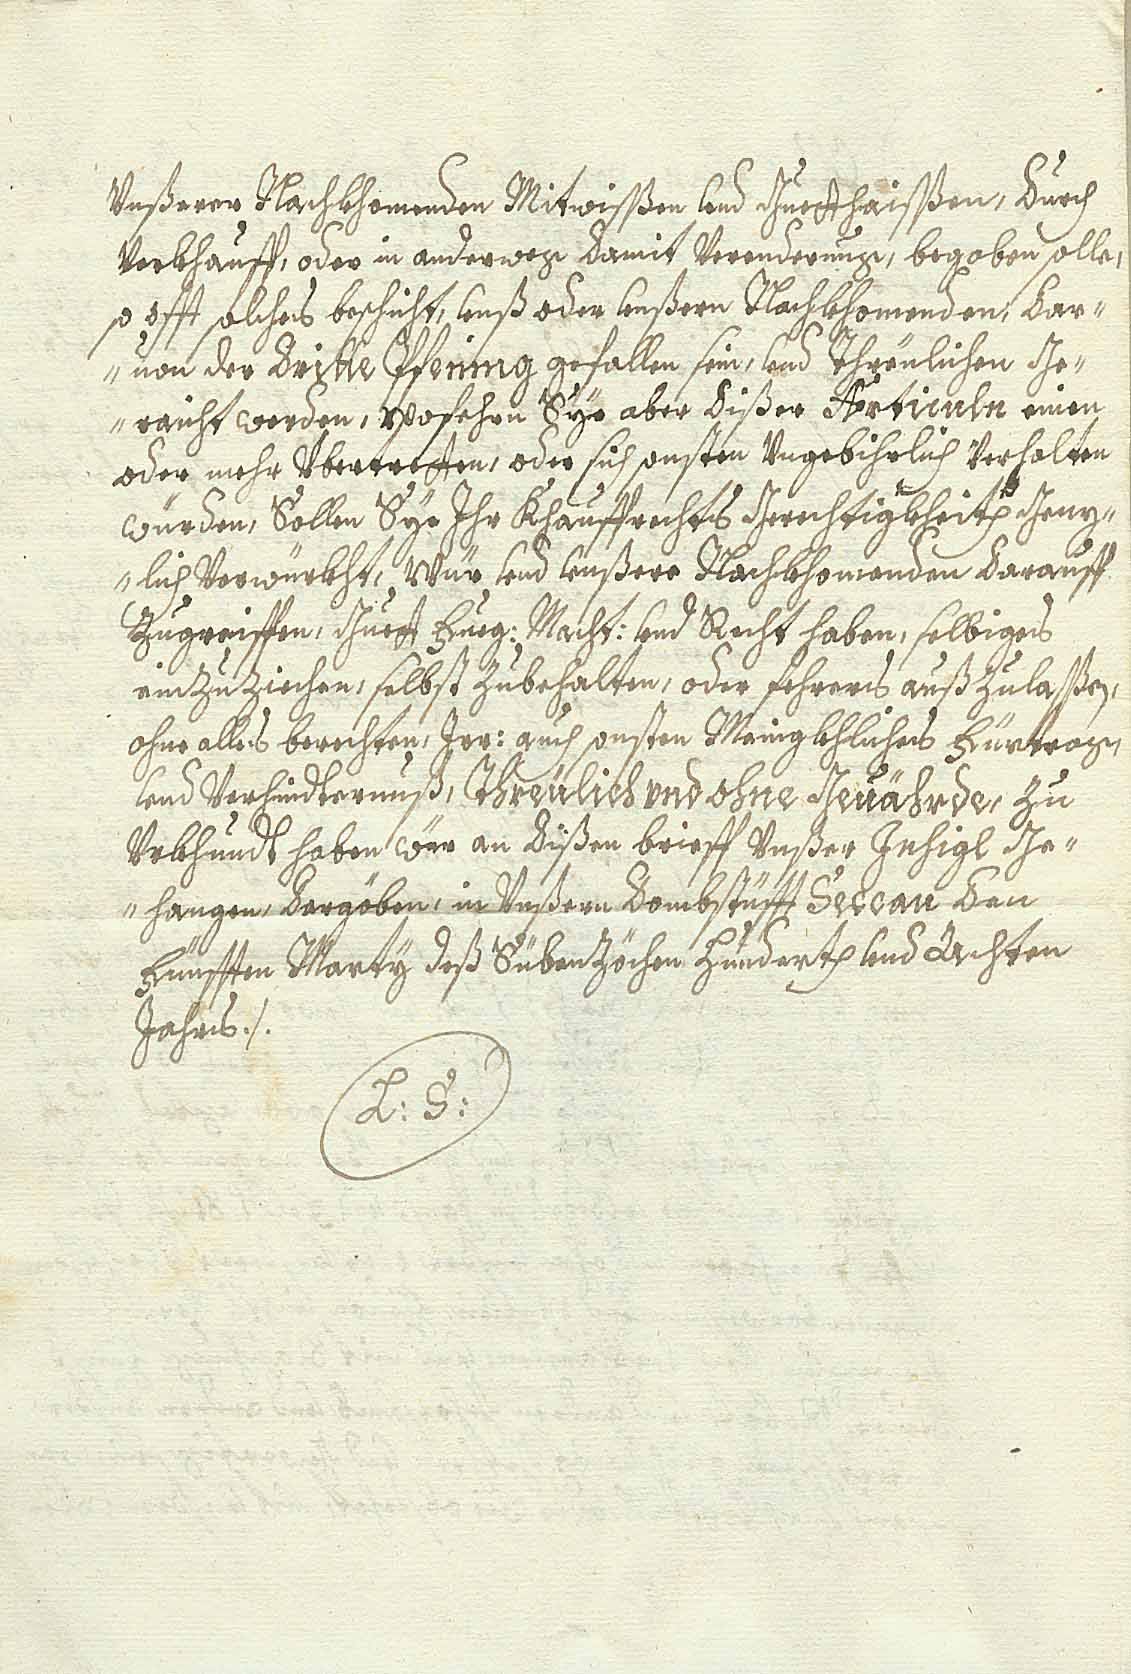 Vnßerer Nachkhomenden Mitwisßen vnd Guetthaisßen, durch
Verkhauff, oder in anderweg damit Verenderung, begeben solle,
so offt solches beschicht, vnß oder vnßern Nachkhomenden, dar=
=uon der dritte Pfening gefallen sein, vnd Threulichen Ge=
=raicht werden, Wofehrn Sye aber dißer Articuln einen
oder mehr Vbertretten, oder sich sonsten Vngebihrlich Verhalten
würden, Sollen Sye Ihr Khauffrechts Gerechtigkheit Genz=
=lich Verwürkht, Wür vnd vnßere Nachkhomenden darauff
Zugreiffen, Guett Fueg: Macht: vnd Recht haben, selbiges
einzuziechen, selbst zubehalten, oder fehrers außzulaßen,
ohne alles berechten, Irr: auch sonsten Mainigkhliches Fürtrag,
vnd Verhindternuß, Threülich vnd ohne Geuährde, zu
Vrkhundt haben wür an dißen brieff Vnßer Insigl Ge=
=hangen, der göben, in Vnßern Dombstüfft Seccau den
Fünfften Marty deß Sübenzöchen Hundert vnd Achten
Jahrs./.
L: S: